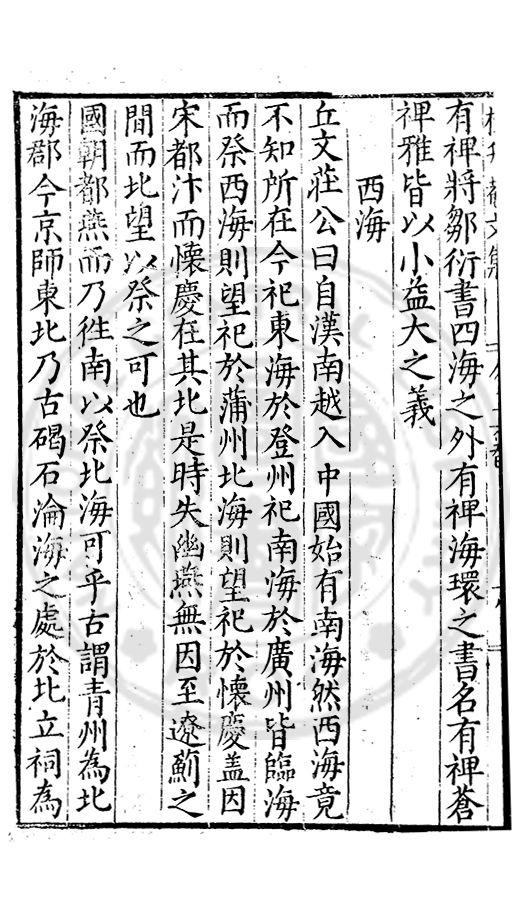 有裨將鄒衍書四海之外有裨海環之書名有裨蒼
裨雅皆以小益大之義
西海
丘文莊公曰自漢南越入中國始有南海然西海竟
不知所在今祀東海於登州祀南海於廣州皆臨海
而祭西海則望祀於蒲州北海則望祀於懷慶盖因
宋都汴而懷慶在其北是時失幽燕無因至遼薊之
間而北望以祭之可也
國朝都燕而乃徃南以祭北海可乎古謂青州為北
海郡今京師東北乃古碣石淪海之處於北立祠為